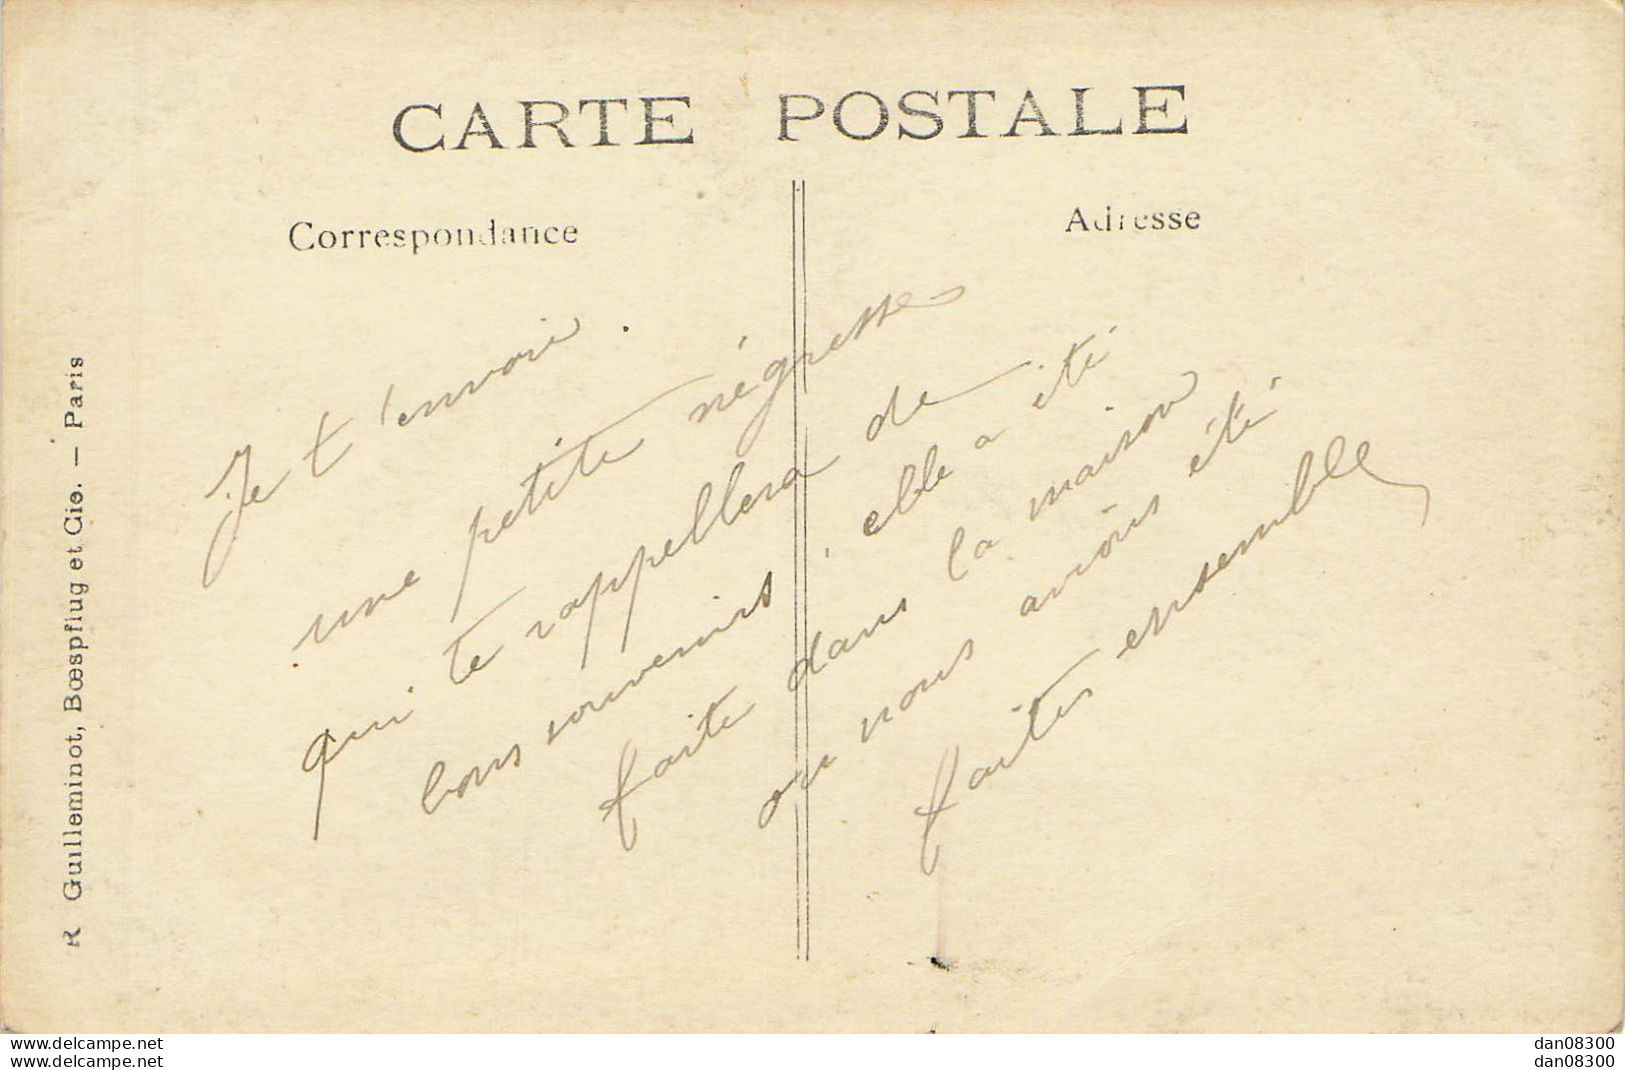 CARTE POSTALE
Correspondance
Adresse
Je t'envoie
une petite négresse
qui te rappellera de
bons souvenirs, elle a été
faite dans la maison
ou nous avions été
faites ensemble
R Guilleminot, Bœspflug et Cie. — Paris
www.delcampe.net
www.delcampe.net
dan08300
dan08300